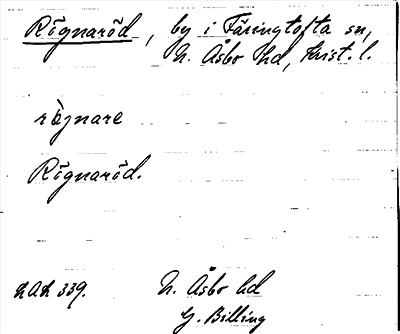 Rögnaröd, by i Färingtofta sn,
N. Åsbo hd, Krist. l.
röjnare
Rögnaröd.
LAL 339. N. Åsbo hd
G. Billing